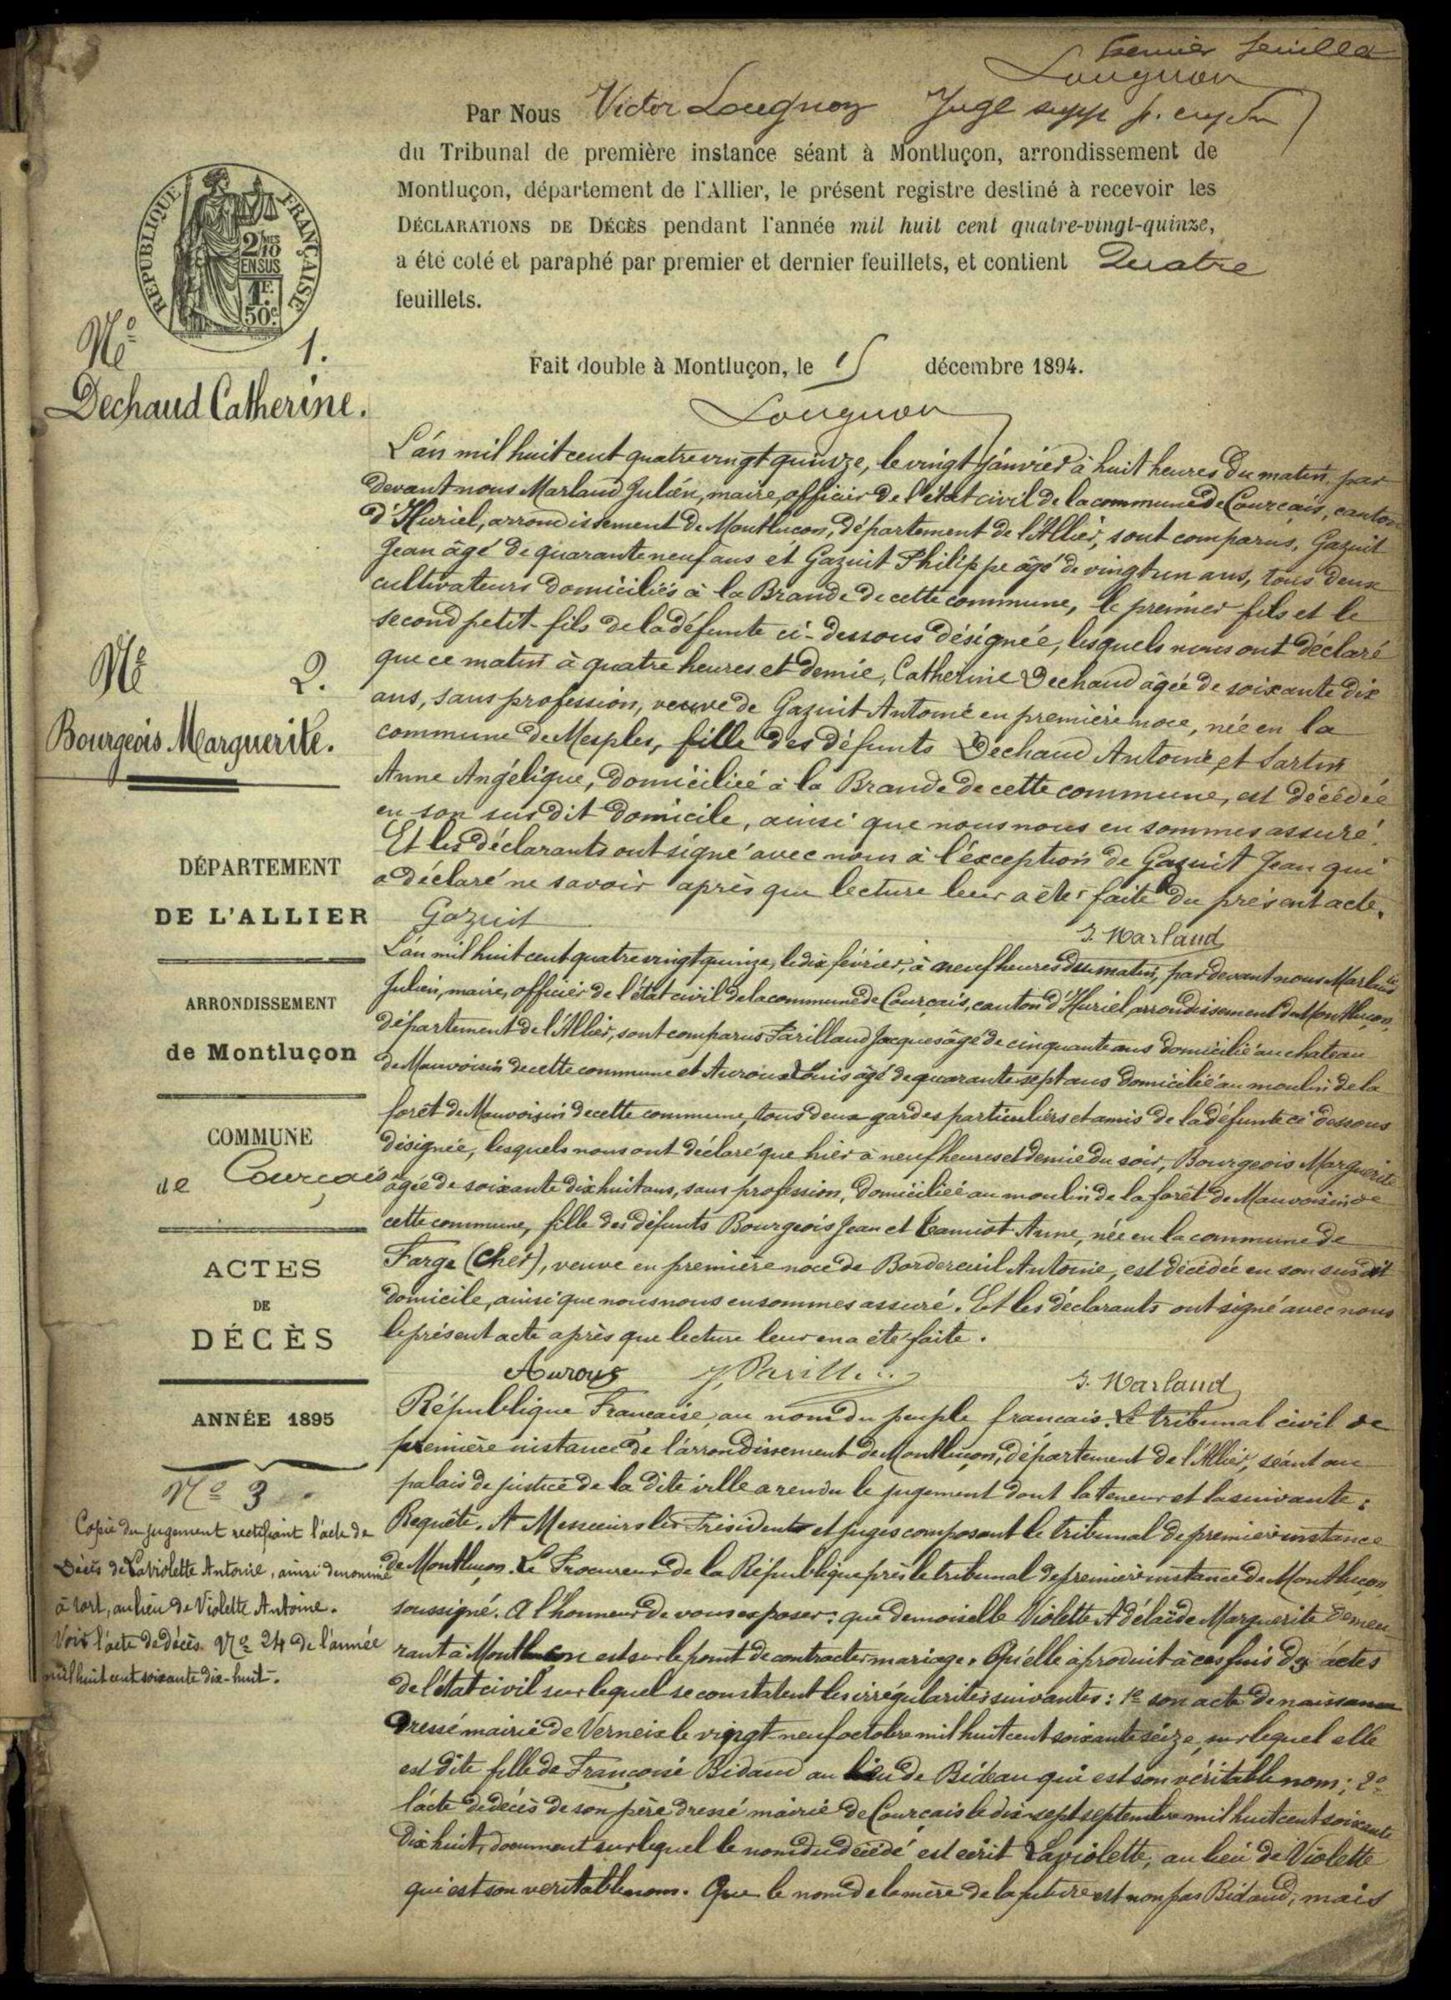 Premier feuillet
Lougnon
Par Nous Victor Lougnon Juge supp
du Tribunal de première instance séant à Montluçon, arrondissement de
Montluçon, département de l'Allier, le présent registre destiné à recevoir les
DÉCLARATIONS DE DÉCÈS pendant l'année mil huit cent quatre-vingt-quinze,
a été coté et paraphé par premier et dernier feuillets, et contient Quatre
feuillets.
Fait double à Montluçon, le 15 décembre 1894.
Lougnon
RÉPUBLIQUE FRANÇAISE
2/10MES
EN SUS
1F.
50c.
No 1.
Dechaud Catherine.
L'an mil huit cent quatre vingt quinze, le vingt janvier à huit heures du matin, par
devant nous Marlaud Julien, maire, officier de l'état civil de la commune de Courçais, canton
d'Huriel, arrondissement de Montluçon, département de l'Allier, sont comparus, Gazuit
Jean âgé de quarante neuf ans et Gazuit Philippe âgé de vingt un ans, tous deux
cultivateurs domiciliés à la Brande de cette commune, le premier fils et le
second petit-fils de la défunte ci-dessous désignée, lesquels nous ont déclaré
que ce matin à quatre heures et demie, Catherine Dechaud âgée de soixante dix
ans, sans profession, veuve de Gazuit Antoine en première noce, née en la
commune de Mesples, fille des défunts Dechaud Antoine et Sartin
Anne Angélique, domiciliée à la Brande de cette commune, est décédée
en son susdit domicile, ainsi que nous nous en sommes assuré.
Et les déclarants ont signé avec nous à l'exception de Gazuit Jean qui
a déclaré ne savoir après que lecture leur a été faite du présent acte.
Gazuit J. Marlaud
No 2.
Bourgeois Marguerite.
L'an mil huit cent quatre vingt quinze, le dix février, à neuf heures du matin, par devant nous Marlaud
Julien, maire, officier de l'état civil de la commune de Courçais, canton d'Huriel, arrondissement de Montluçon,
département de l'Allier, sont comparus Parillaud Jacques âgé de cinquante ans domicilié au chateau
de Mauvoisin de cette commune et Auroux Louis âgé de quarante sept ans domicilié au moulin de la
forêt de Mauvoisin de cette commune, tous deux gardes particuliers et amis de la défunte ci dessous
désignée, lesquels nous ont déclaré que hier à neuf heures et demie du soir, Bourgeois Marguerite
âgée de soixante dix huit ans, sans profession, domiciliée au moulin de la forêt de Mauvoisin de
cette commune, fille des défunts Bourgeois Jean et Anne, née en la commune de
Farge (Cher), veuve en première noce de Bordereuil Antoine, est décédée en son susdit
domicile, ainsi que nous nous en sommes assuré. Et les déclarants ont signé avec nous
le présent acte après que lecture leur en a été faite.
Auroux J. Marlaud
DÉPARTEMENT
DE L'ALLIER
ARRONDISSEMENT
de Montluçon
COMMUNE
de Courçais
ACTES
DE
DÉCÈS
ANNÉE 1895
No 3
Copie du jugement rectifiant l'acte de
Décès de Laviolette Antoine, ainsi dénommé
à tort, au lieu de Violette Antoine.
Voir l'acte de décès No 24 de l'année
mil huit cent soixante dix-huit.
République Française, au nom du peuple français. Le tribunal civil de
première instance de l'arrondissement de Montluçon, département de l'Allier, séant au
palais de justice de la dite ville a rendu le jugement dont la teneur et la suivante:
Requête. A Messieurs les Présidents et juges composant le tribunal de première instance
de Montluçon. Le Procureur de la République près le tribunal de première instance de Montluçon,
soussigné. A l'honneur de vous exposer: que demoiselle Violette Adélaïde Marguerite demeu
rant à Montluçon est sur le point de contracter mariage. Qu'elle a produit à ces fins des actes
de l'état civil sur lequel se constatent les irrégularités suivantes: 1o son acte de naissance
dressé mairie de Verneix le vingt-neuf octobre mil huit cent soixante seize, sur lequel elle
est dite fille de Françoise Bidaud au lieu de Bideau qui est son véritable nom; 2o
l'acte de décès de son père dressé mairie de Courçais le dix-sept septembre mil huit cent soixante
dix huit, document sur lequel le nom du décédé est écrit Laviolette, au lieu de Violette
qui est son veritable nom. Que le nom de la mère de la future est non pas Bidaud, mais